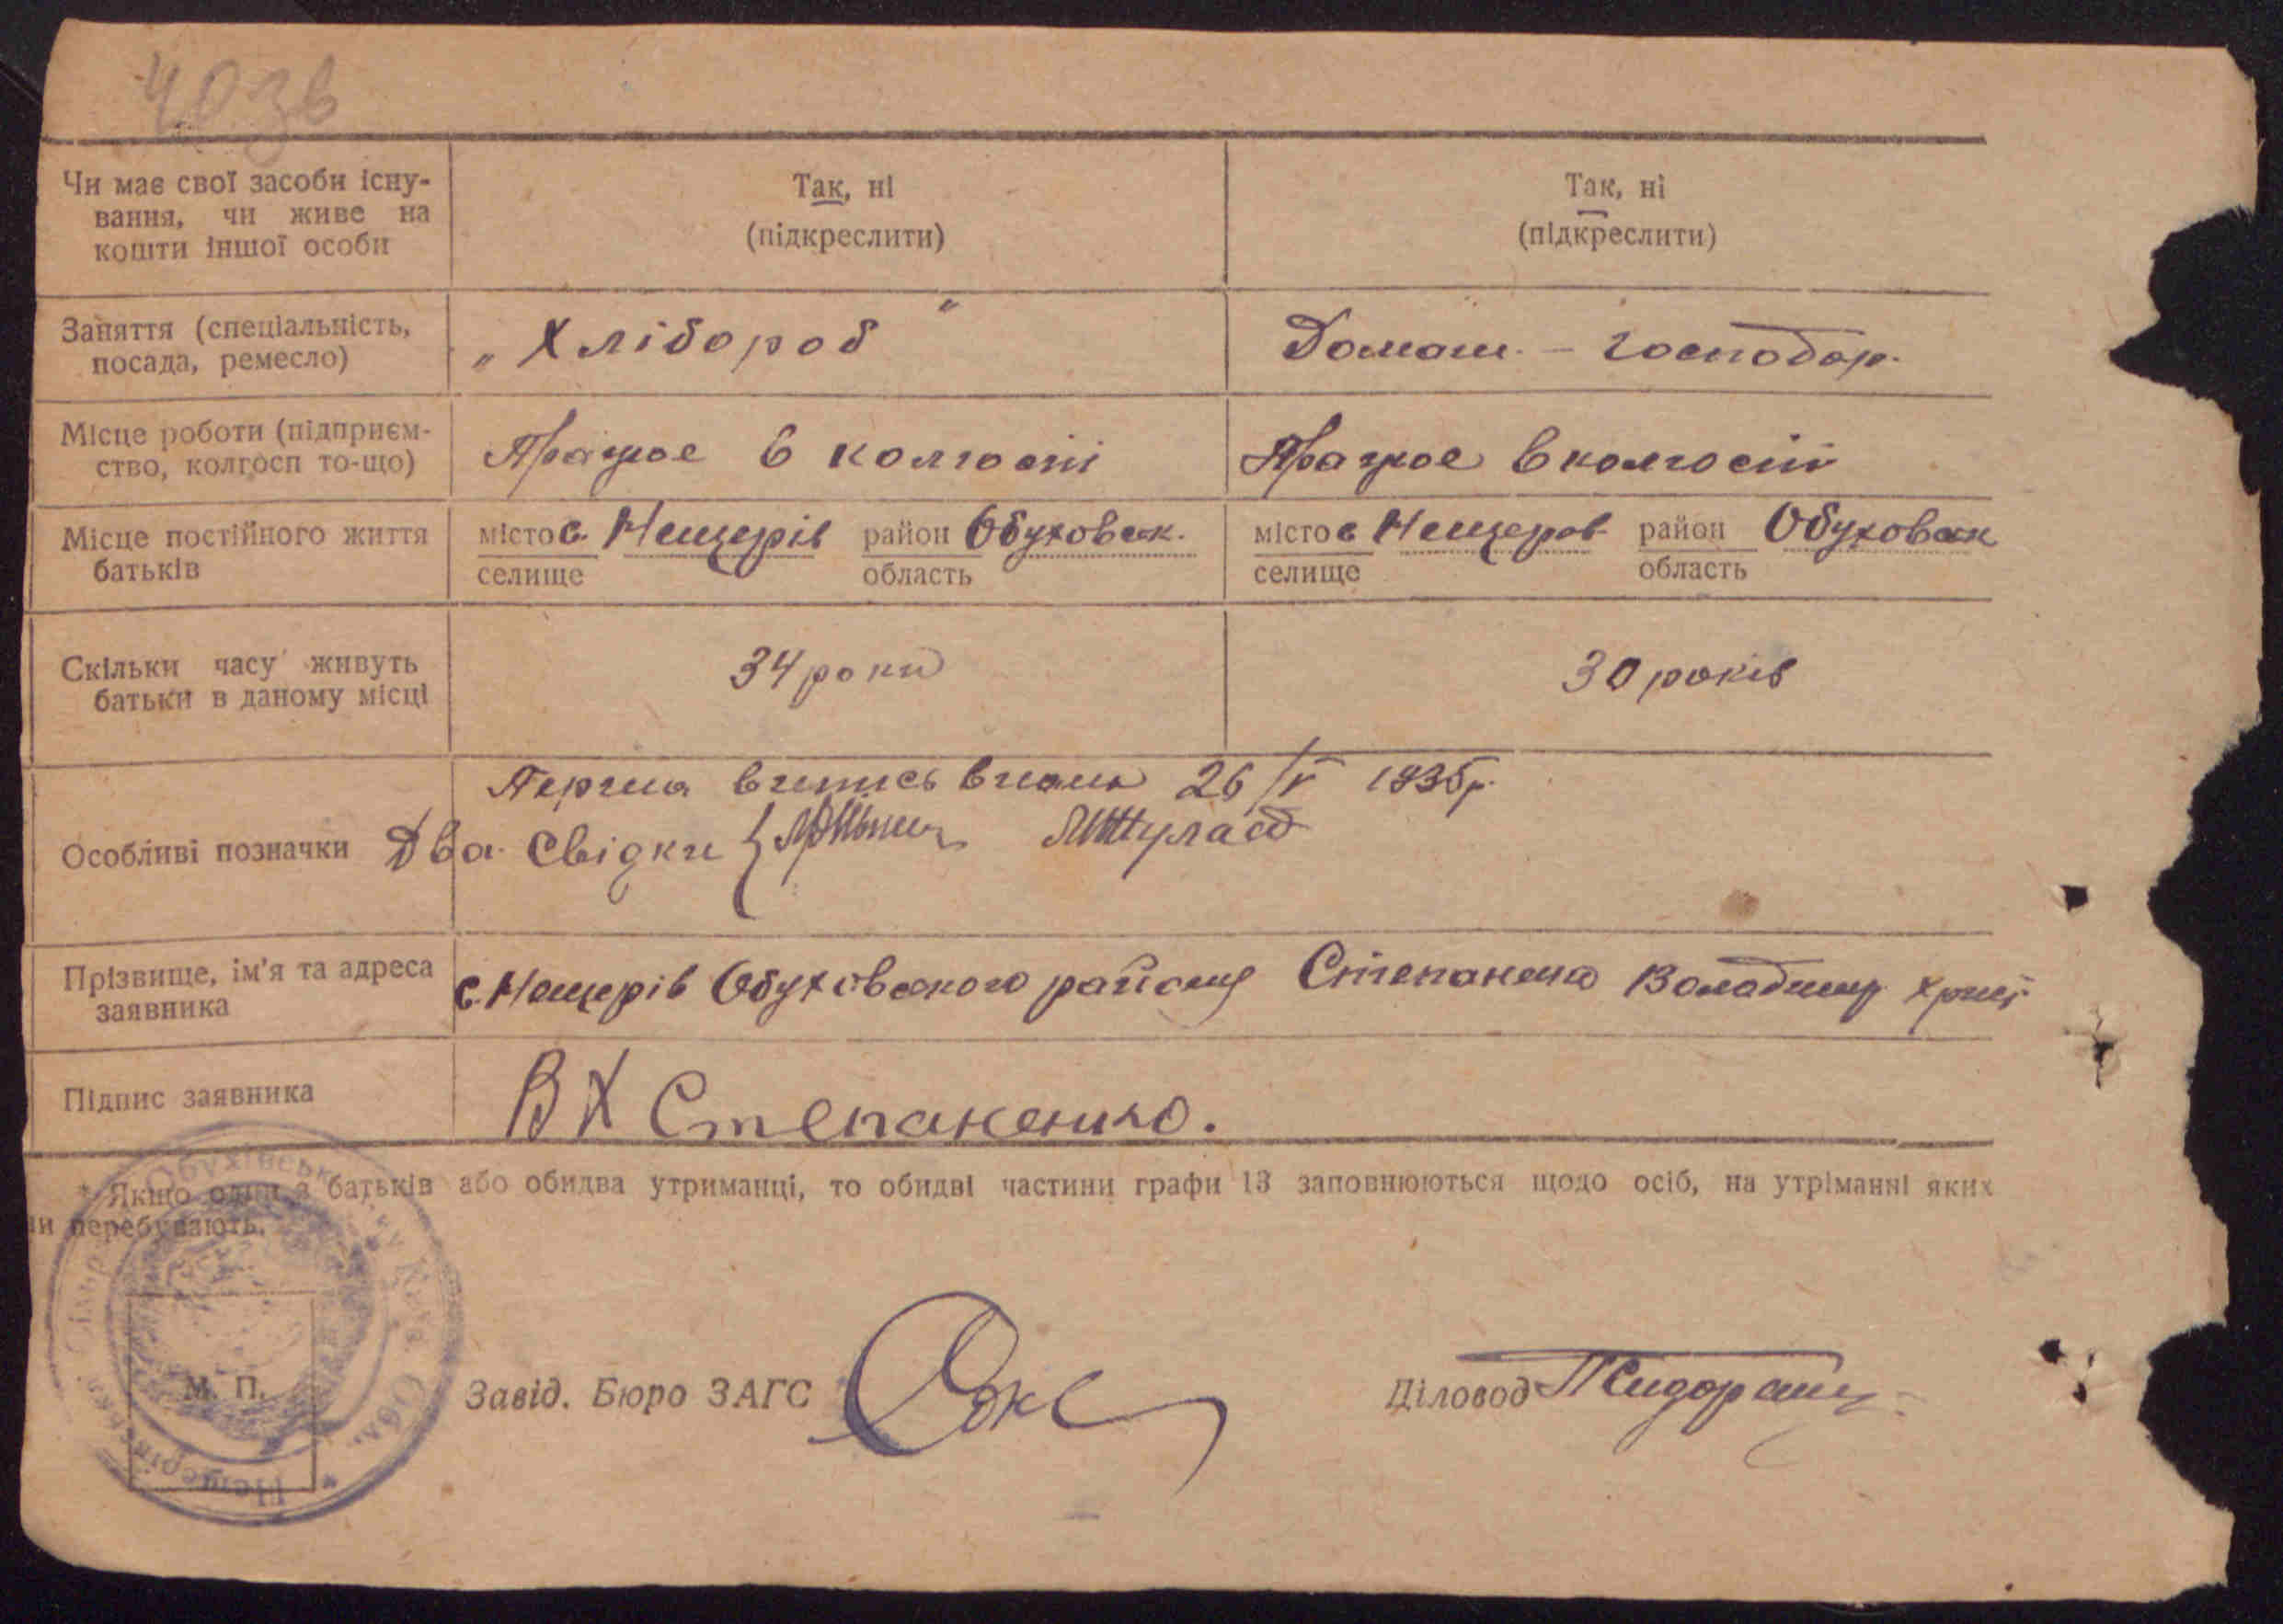 40зв
Чи має свої засоби існу-
вання, чи живе на
кошти іншої особи
Так, ні
(підкреслити)
Так, ні
(підкреслити)
Заняття (спеціальність,
посада, ремесло)
„Хлібороб"
Домаш. - господар.
Місце роботи (підприєм-
ство, колгосп то-що)
Працює в колгоспі
Працює в колгоспі
Місце постійного життя
батьків
місто с. Нещерів район Обуховск.
селище область
місто с Нещеров район Обуховск
селище область
Скільки часу живуть
батьки в даному місці
34 роки
30 років
Особливі позначки
26/V 1935р.
Два Свідки
Прізвище, ім'я та адреса
заявника
с. Нещерів Обуховского району Степаненко Володимир Хри
Підпис заявника
В Х Степаненко.
* Якщо один з батьків або обидва утриманці, то обидві частини графи 13 заповнюються щодо осіб, на утріманні яких
ни перебувають.
М. П.
Завід. Бюро ЗАГС
Діловод